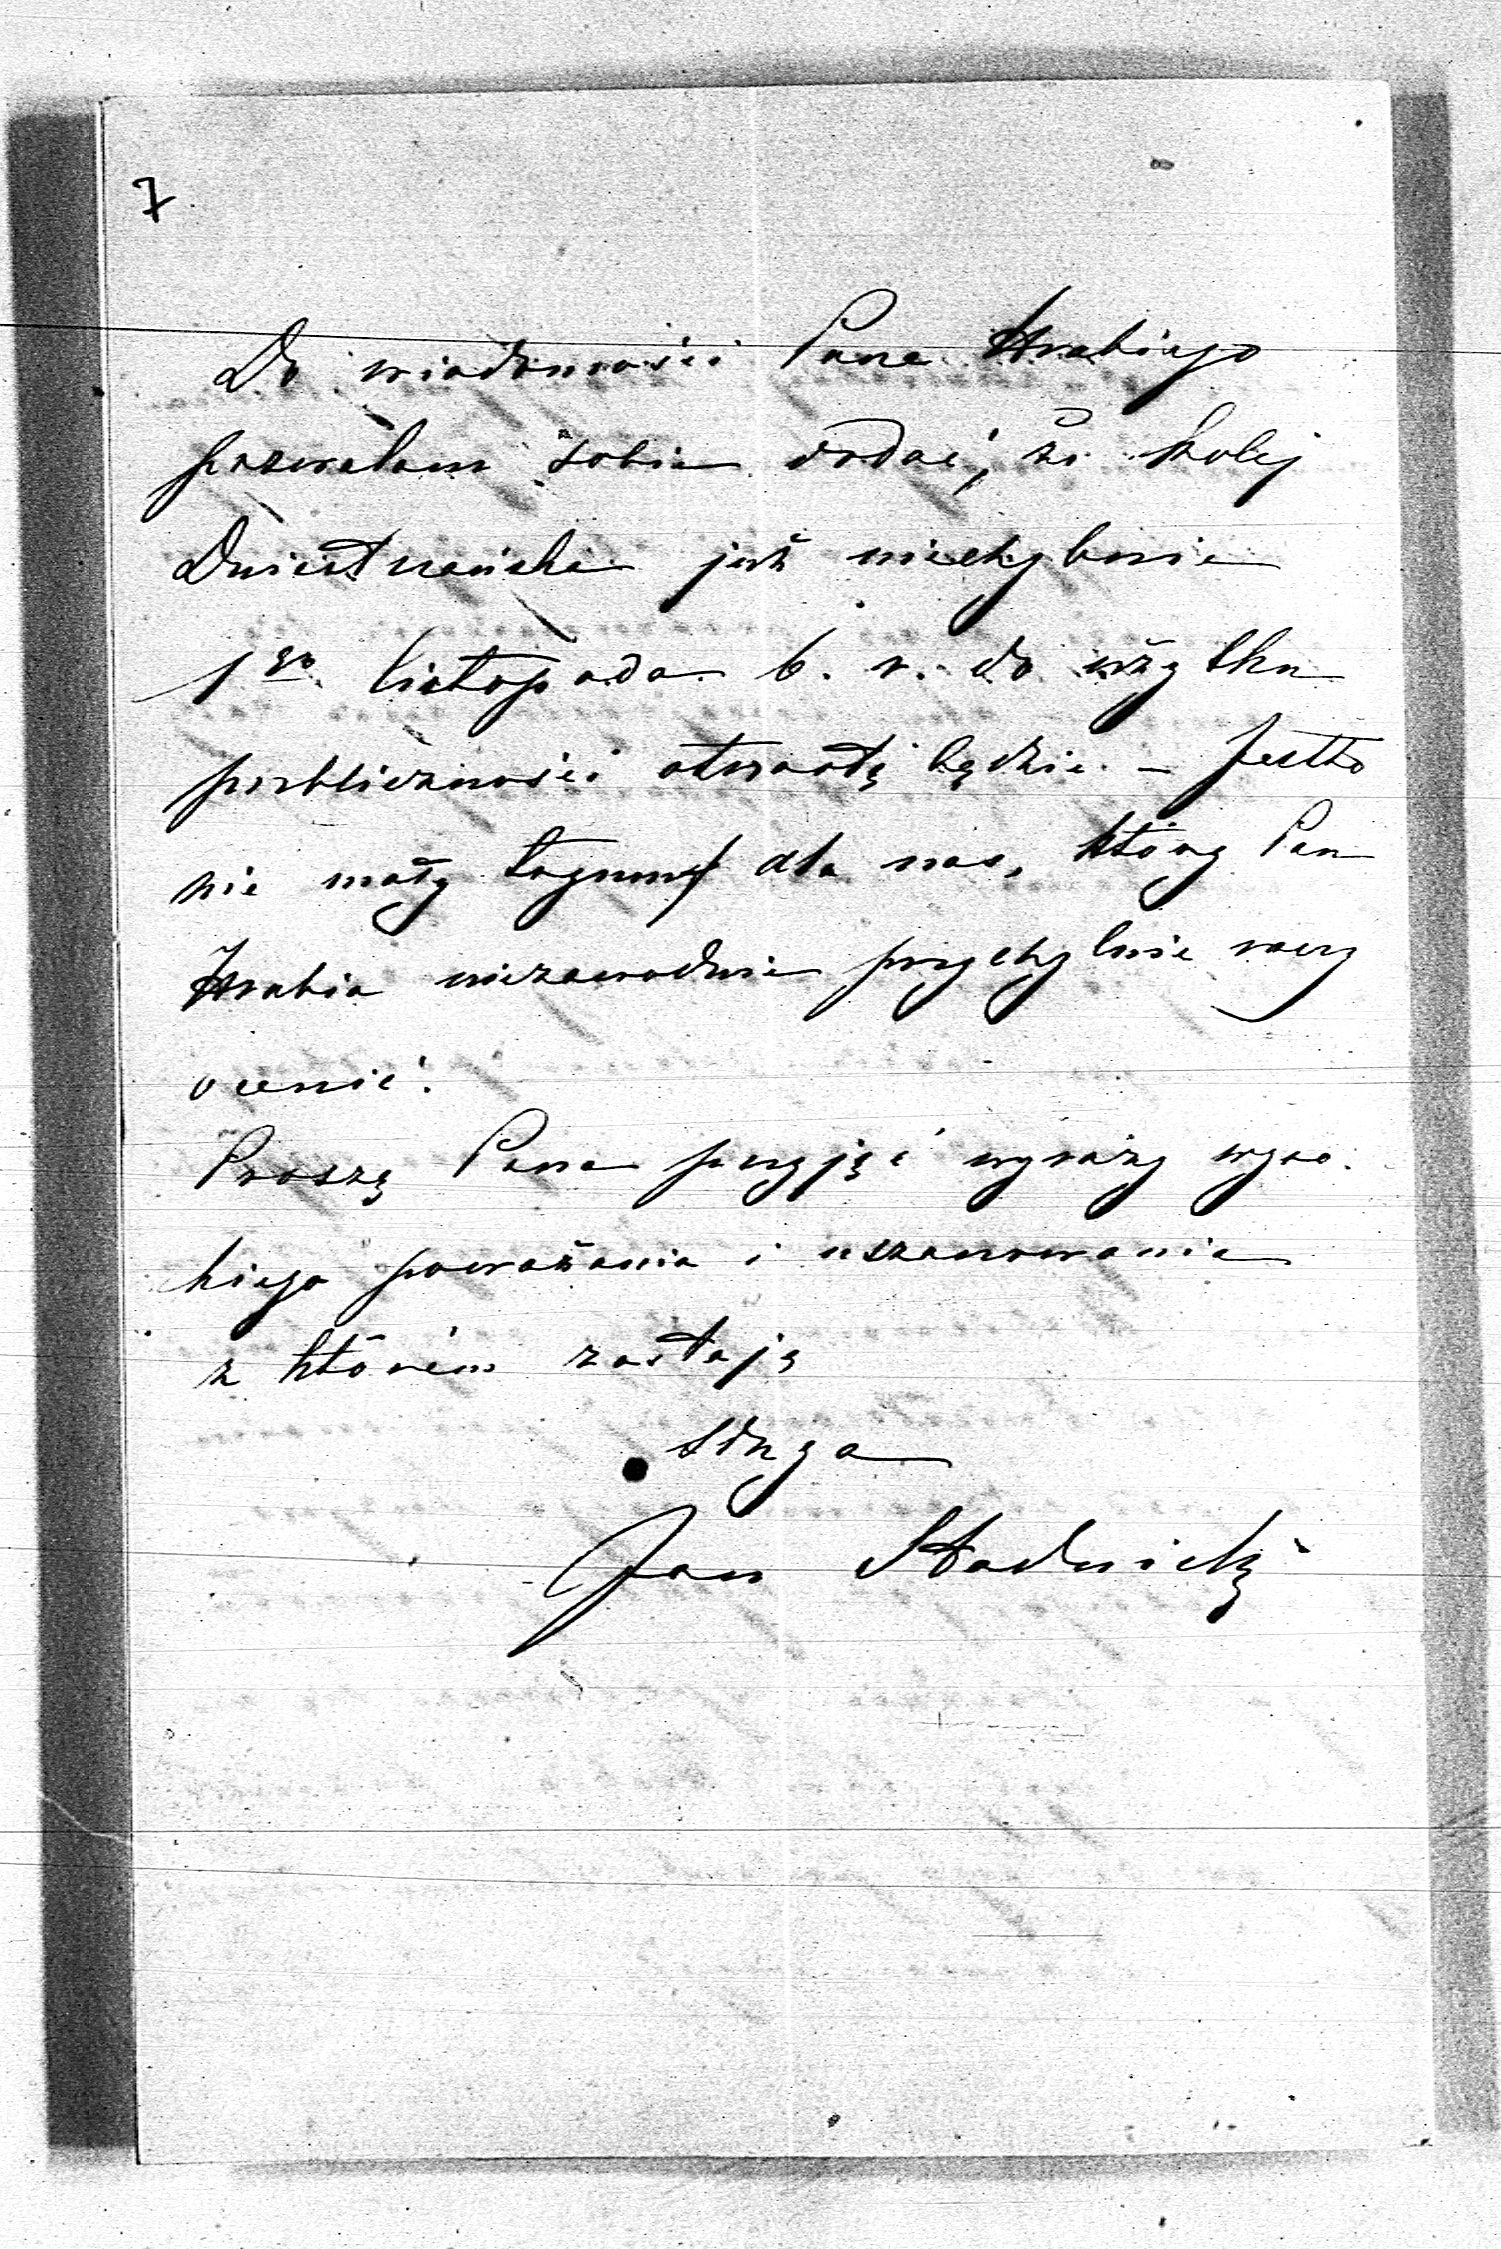 7
Do wiadomości Pana Hrabiego
pozwalam sobie dodać, że kolej
Dniestrańska już niechybnie
1go listopada b. r. do użytku
publiczności otwartą będzie. – Jestto
nie mały tryumf dla nas, który Pan
Hrabia niezawodnie przychylnie raczy
ocenić.
Proszę Pana przyjąć wyrazy wyso-
kiego poważania i uszanowania
z którém zostaję
sługa
Jan Stadnicki